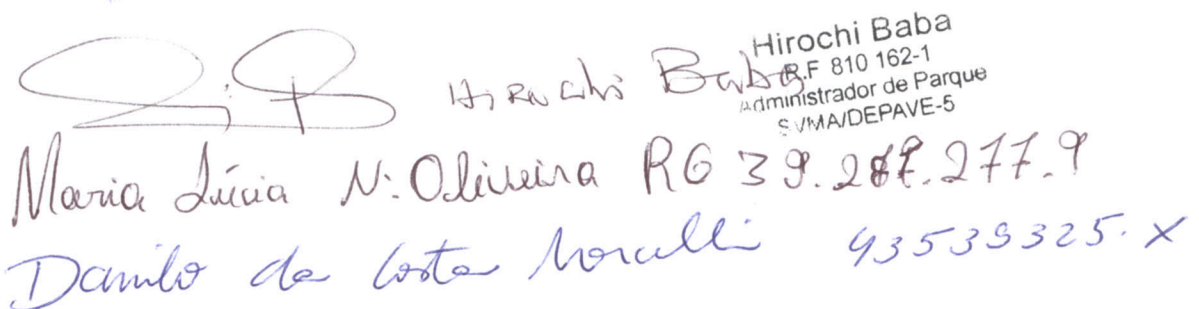 Hirochi Baba
Hirochi Baba
R.F 810 162-1
Administrador de Parque
SVMA/DEPAVE-5
Maria Lúcia N. Oliveira RG 39.287.277.9
Danilo da Costa 43539325-X